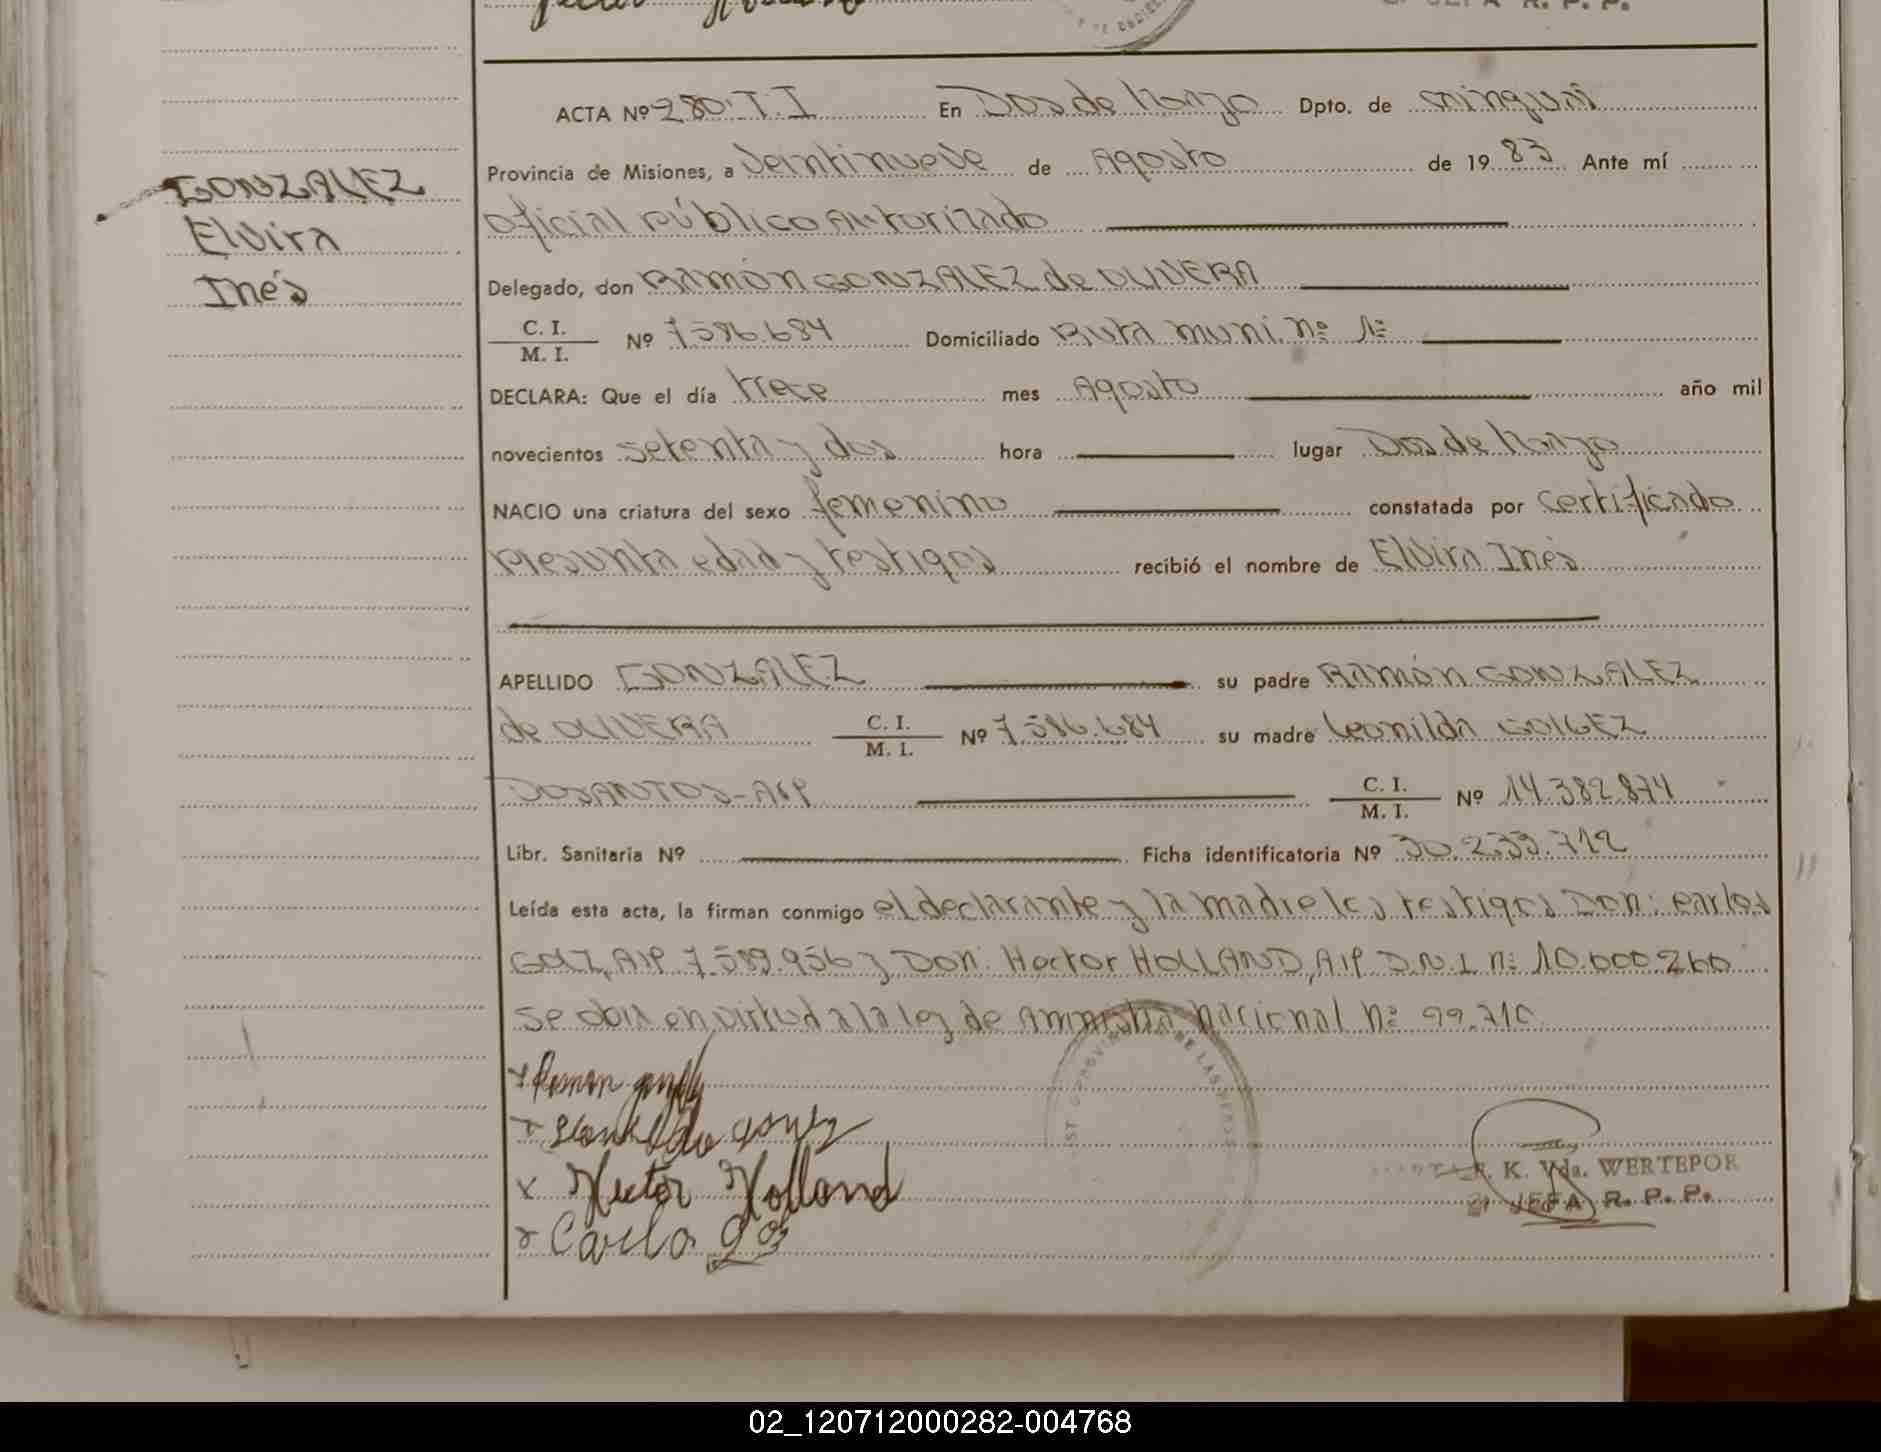 ACTA Nº 280. T. I En Dos de Marzo Dpto. de
Provincia de Misiones, a Veintinueve de Agosto de 1983 Ante mí
GONZALEZ
Oficial Público Autorizado
Elvira
Inés
Delegado, don RAMÓN GONZALEZ de OLIVERA
C. I. / M. I. Nº 7.586.684 Domiciliado Ruta muni. nº 1º
DECLARA: Que el día trece mes Agosto año mil
novecientos setenta y dos hora lugar Dos de Marzo
NACIO una criatura del sexo femenino constatada por certificado
presunta edad y testigos recibió el nombre de Elvira Inés
APELLIDO GONZALEZ su padre RAMÓN GONZALEZ
de OLIVERA C. I. / M. I. Nº 7.586.684 su madre Leonilda
DOSANTOS - C. I. / M. I. Nº 14.382.874
Libr. Sanitaria Nº Ficha identificatoria Nº 30.239.712
Leída esta acta, la firman conmigo el declarante y la madre los testigos Don: Carlos
7.589.956 y Don: Hector HOLLAND, D.N.I nº 10.000.260
Se obra en virtud a la ley de Amnistia Nacional nº
Ramon
Hector Holland
K. Vda. WERTEPOR
JEFA R. P. P.
02_120712000282-004768